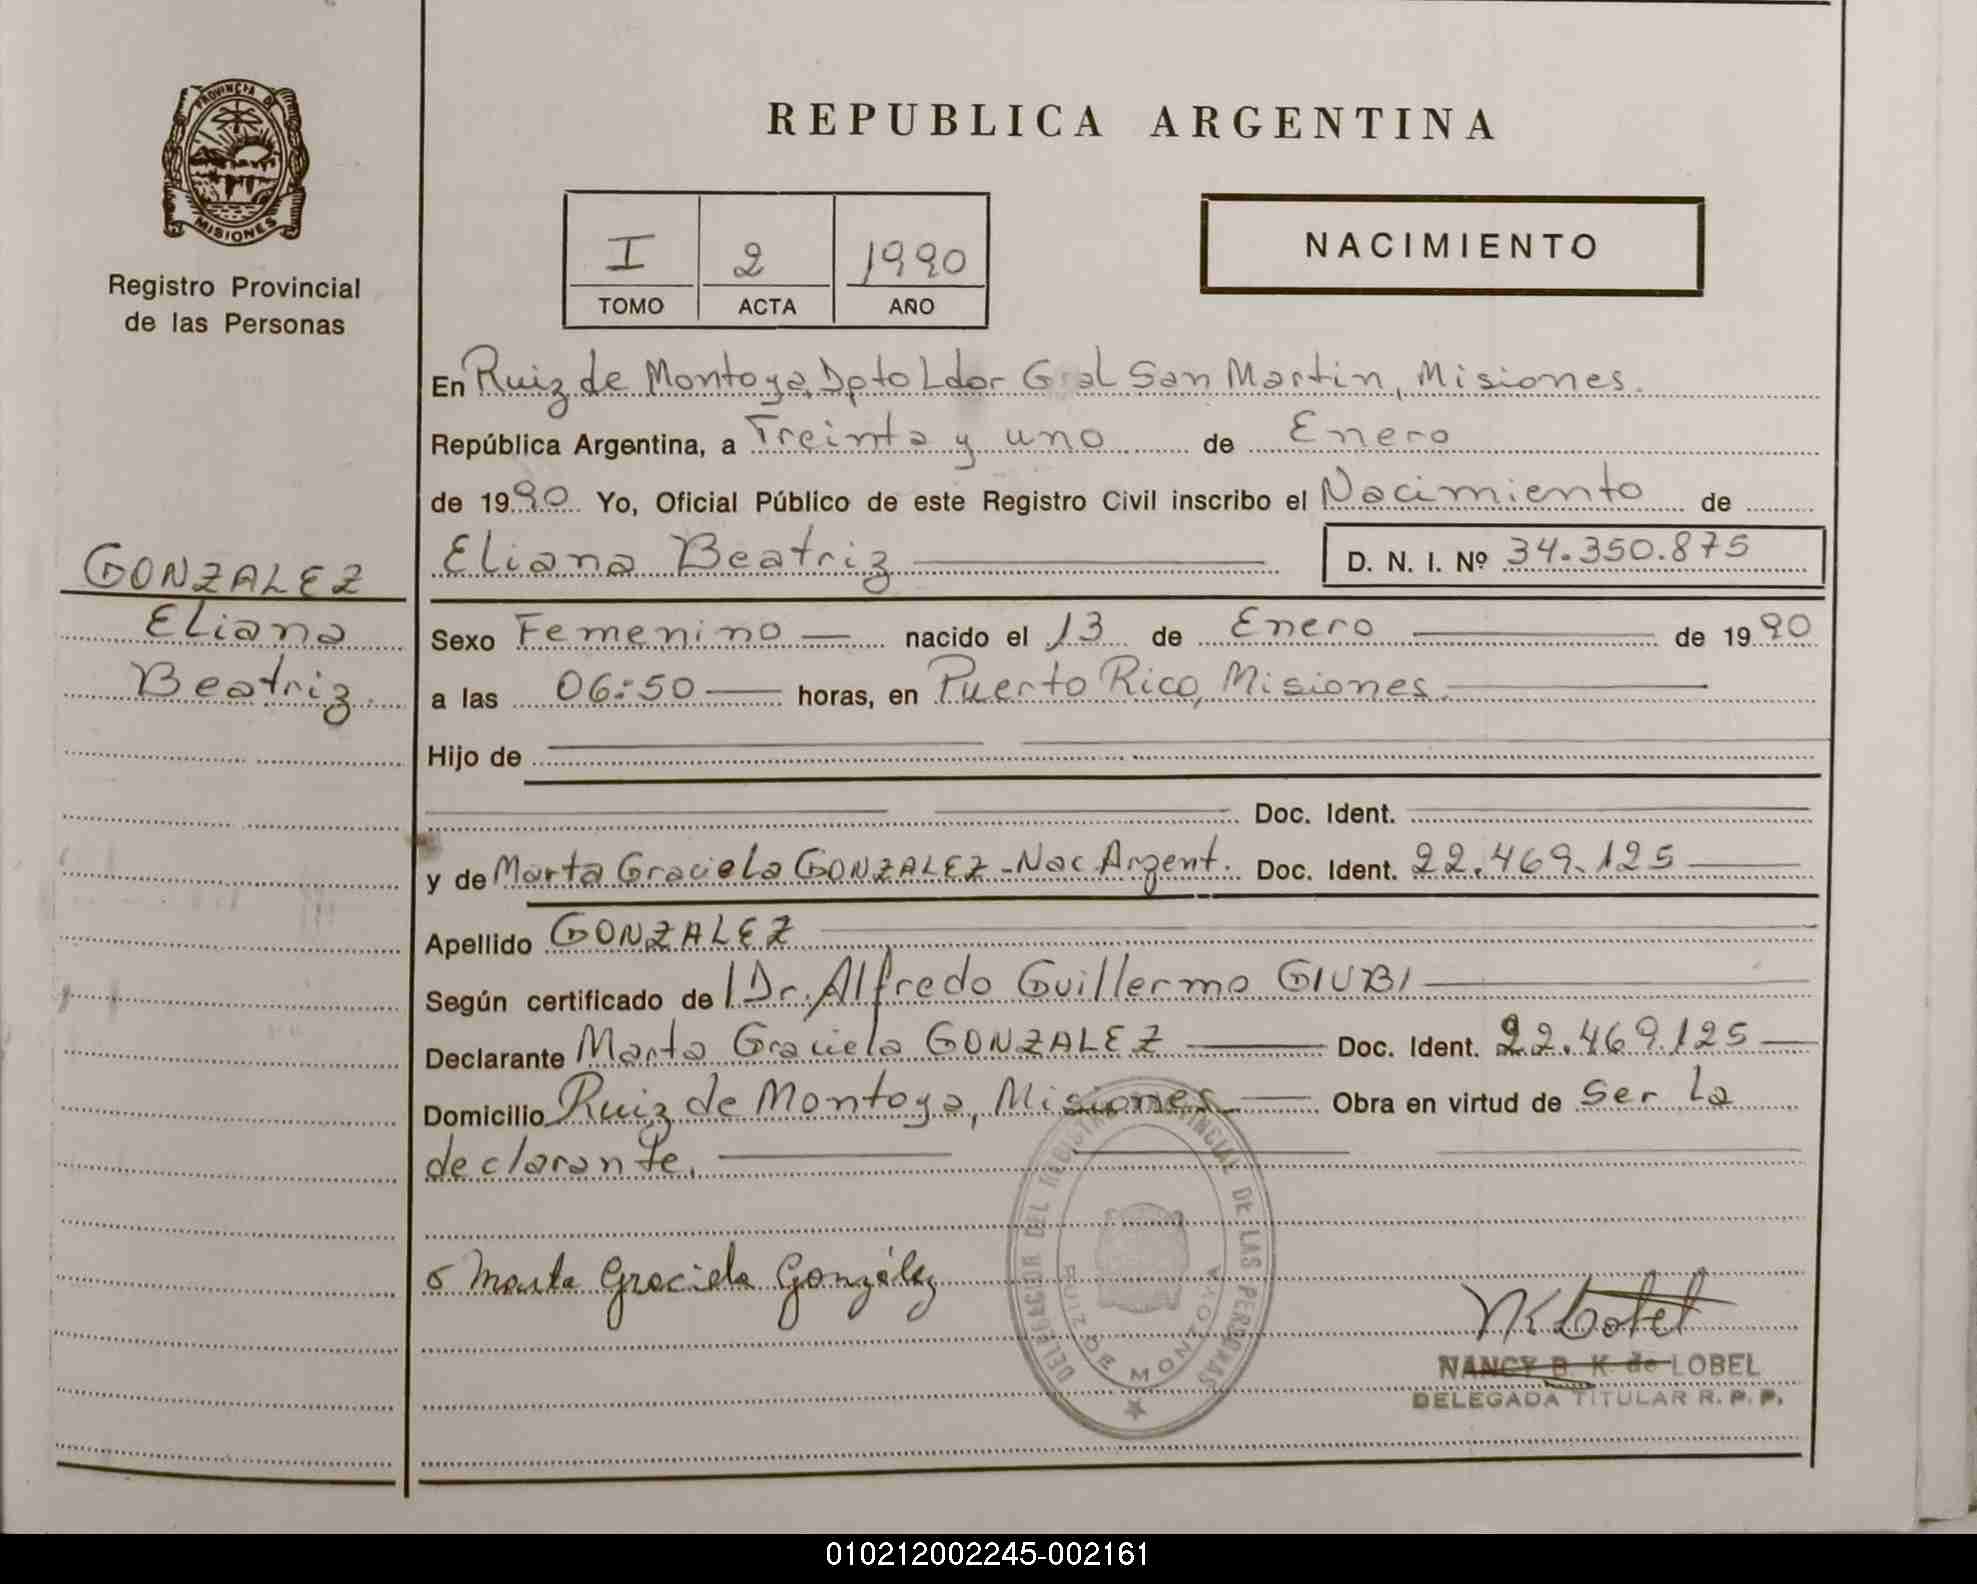 PROVINCIA DE
MISIONES
Registro Provincial
de las Personas
REPUBLICA ARGENTINA
I 2 1990
TOMO ACTA AÑO
NACIMIENTO
En Ruiz de Montoya, Dpto Ldor Gral San Martin, Misiones.
República Argentina, a Treinta y uno de Enero
de 1990 Yo, Oficial Público de este Registro Civil inscribo el Nacimiento de
Eliana Beatriz D. N. I. Nº 34.350.875
GONZALEZ
Eliana
Beatriz.
Sexo Femenino nacido el 13 de Enero de 1990
a las 06:50 horas, en Puerto Rico, Misiones.
Hijo de
Doc. Ident.
y de Marta Graciela GONZALEZ - Nac Argent. Doc. Ident. 22.469.125
Apellido GONZALEZ
Según certificado de Dr. Alfredo Guillermo GIUBI
Declarante Marta Graciela GONZALEZ Doc. Ident. 22.469.125
Domicilio Ruiz de Montoya, Misiones Obra en virtud de Ser la
declarante.
Marta Graciela González
DEL REGISTRO PROVINCIAL DE LAS PERSONAS
RUIZ DE MONTOYA
NANCY B. K. de LOBEL
DELEGADA TITULAR R. P. P.
010212002245-002161